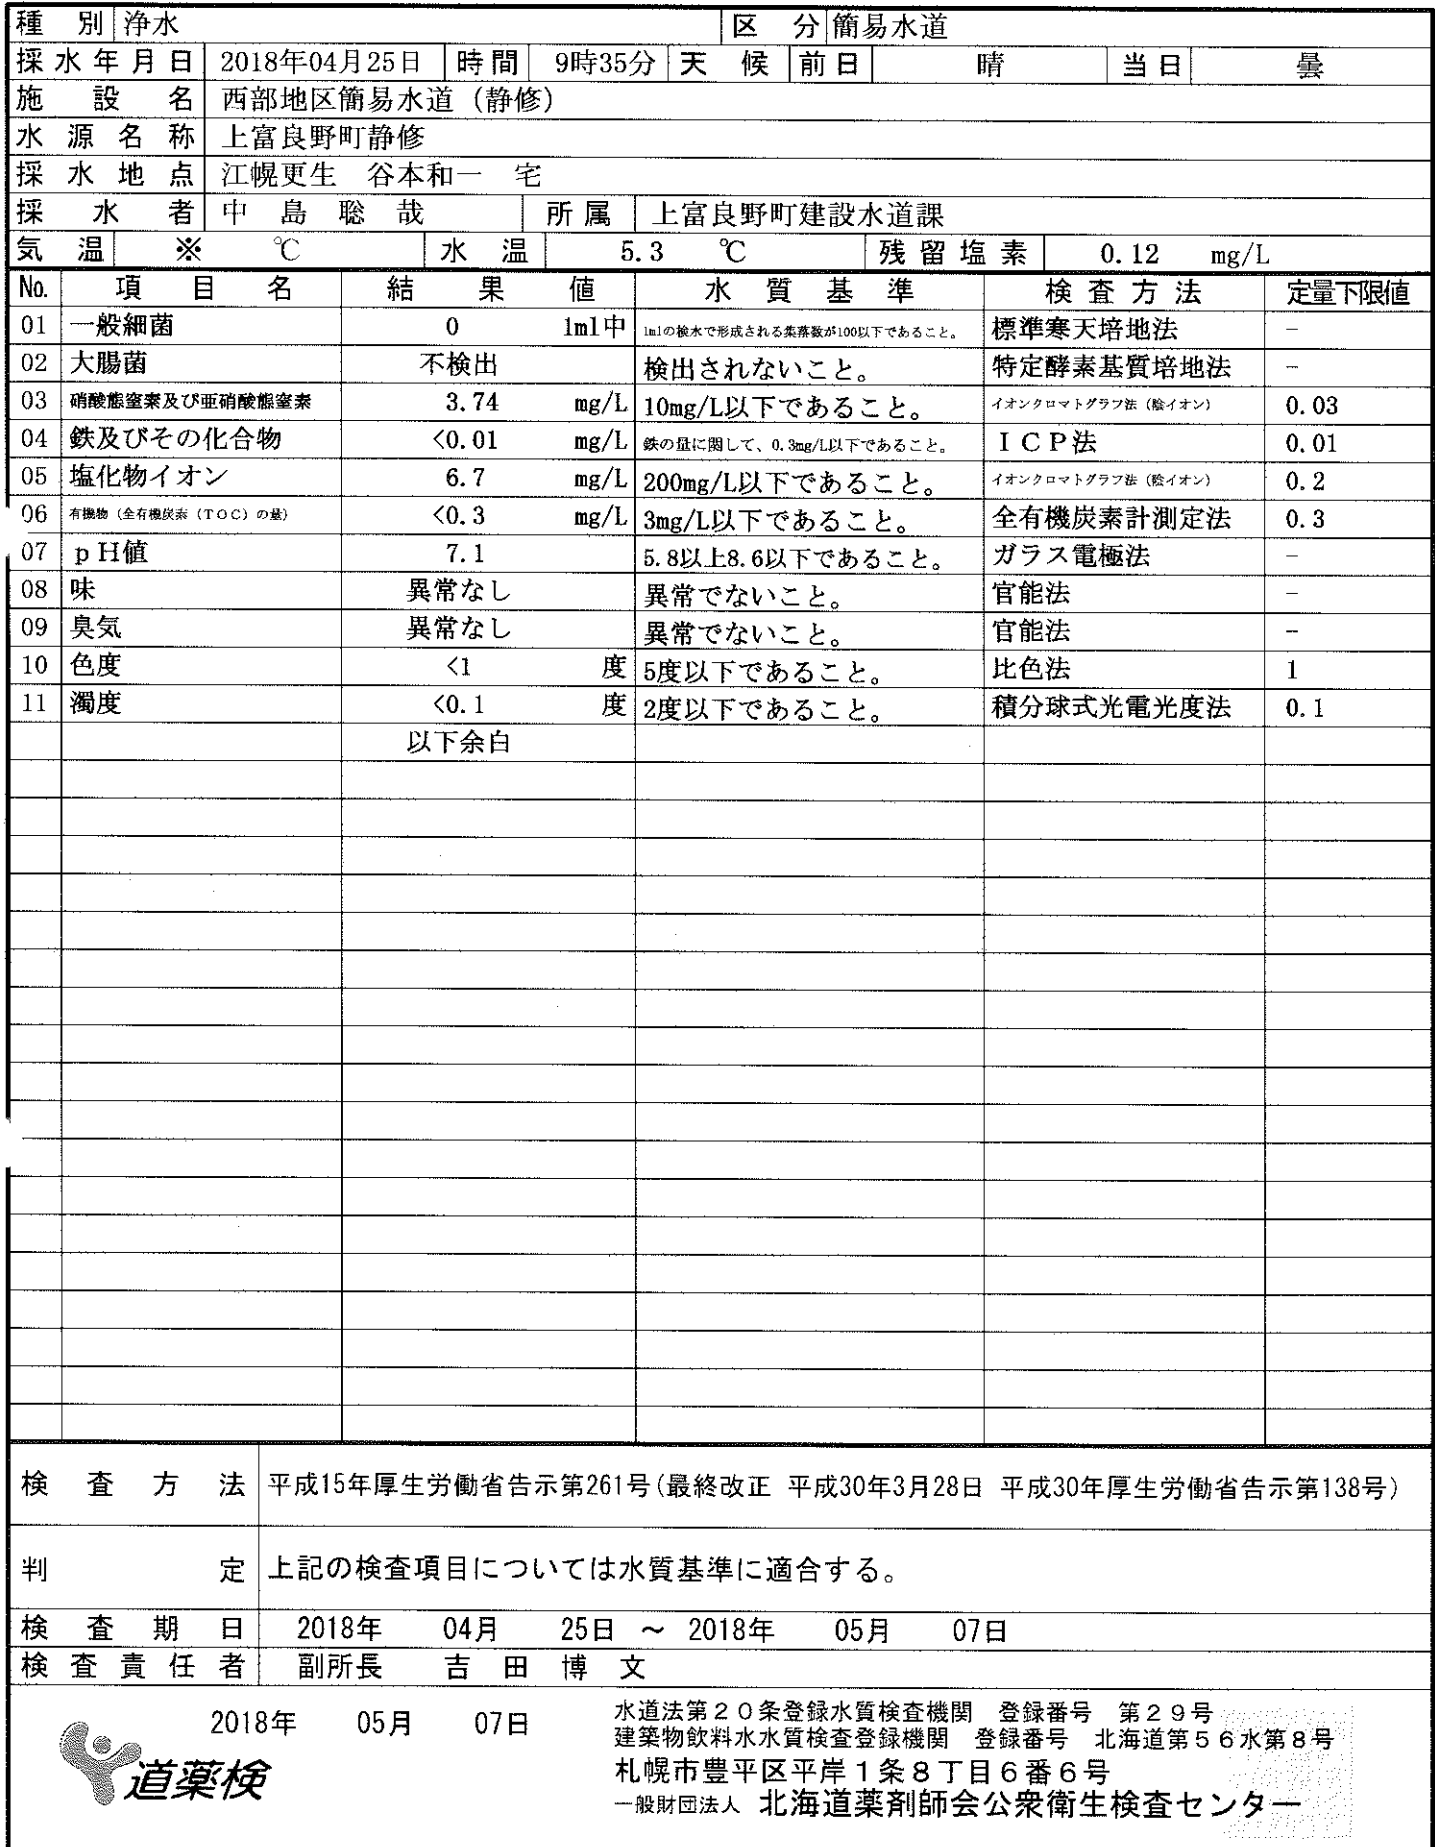 種別 浄水 区分 簡易水道
採水年月日 2018年04月25日 時間 9時35分 天候 前日 晴 当日 曇
施設名 西部地区簡易水道（静修）
水源名称 上富良野町静修
採水地点 江幌更生 谷本和一 宅
採水者 中島聡哉 所属 上富良野町建設水道課
気温 ※ ℃ 水温 5.3 ℃ 残留塩素 0.12 mg/L
No. 項目名 結果値 水質基準 検査方法 定量下限値
01 一般細菌 0 1ml中 1mlの検水で形成される集落数が100以下であること。 標準寒天培地法 －
02 大腸菌 不検出 検出されないこと。 特定酵素基質培地法 －
03 硝酸態窒素及び亜硝酸態窒素 3.74 mg/L 10mg/L以下であること。 イオンクロマトグラフ法（陰イオン） 0.03
04 鉄及びその化合物 <0.01 mg/L 鉄の量に関して、0.3mg/L以下であること。 ＩＣＰ法 0.01
05 塩化物イオン 6.7 mg/L 200mg/L以下であること。 イオンクロマトグラフ法（陰イオン） 0.2
06 有機物（全有機炭素（ＴＯＣ）の量） <0.3 mg/L 3mg/L以下であること。 全有機炭素計測定法 0.3
07 ｐＨ値 7.1 5.8以上8.6以下であること。 ガラス電極法 －
08 味 異常なし 異常でないこと。 官能法 －
09 臭気 異常なし 異常でないこと。 官能法 －
10 色度 <1 度 5度以下であること。 比色法 1
11 濁度 <0.1 度 2度以下であること。 積分球式光電光度法 0.1
以下余白
検査方法 平成15年厚生労働省告示第261号(最終改正 平成30年3月28日 平成30年厚生労働省告示第138号)
判定 上記の検査項目については水質基準に適合する。
検査期日 2018年 04月 25日 ～ 2018年 05月 07日
検査責任者 副所長 吉田博文
2018年 05月 07日
道薬検
水道法第２０条登録水質検査機関 登録番号 第２９号
建築物飲料水水質検査登録機関 登録番号 北海道第５６水第８号
札幌市豊平区平岸１条８丁目６番６号
一般財団法人 北海道薬剤師会公衆衛生検査センター